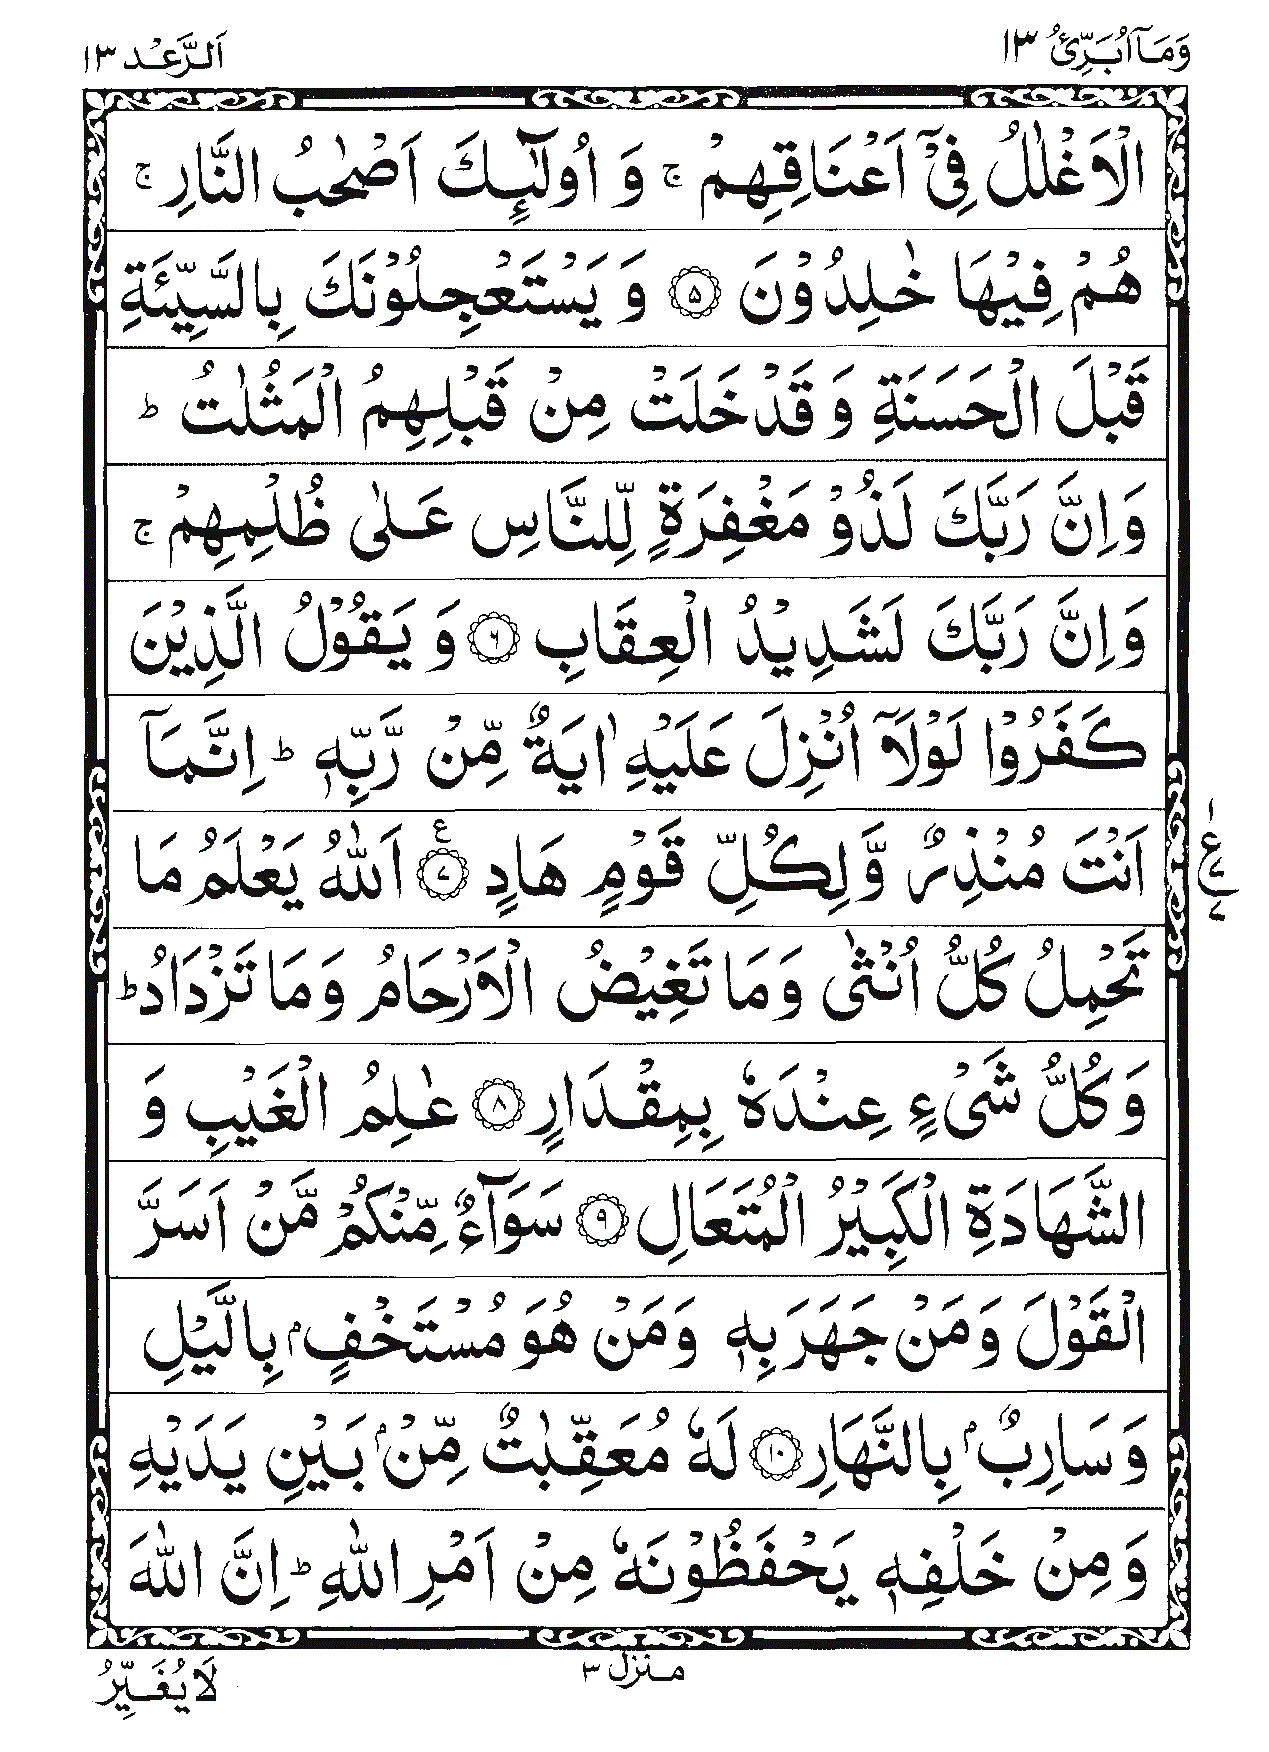 وَمَآ اُبَرِّئُ ١٣
اَلرَّعْد ١٣
الْاَغْلٰلُ فِیْۤ اَعْنَاقِهِمْ ۚ وَ اُولٰٓئِكَ اَصْحٰبُ النَّارِ ۚ
هُمْ فِیْهَا خٰلِدُوْنَ ۵ وَ یَسْتَعْجِلُوْنَكَ بِالسَّیِّئَةِ
قَبْلَ الْحَسَنَةِ وَ قَدْ خَلَتْ مِنْ قَبْلِهِمُ الْمَثُلٰتُ ؕ
وَاِنَّ رَبَّكَ لَذُوْ مَغْفِرَةٍ لِّلنَّاسِ عَلٰی ظُلْمِهِمْ ۚ
وَاِنَّ رَبَّكَ لَشَدِیْدُ الْعِقَابِ ۶ وَ یَقُوْلُ الَّذِیْنَ
كَفَرُوْا لَوْلَاۤ اُنْزِلَ عَلَیْهِ اٰیَةٌ مِّنْ رَّبِّهٖ ؕ اِنَّمَاۤ
اَنْتَ مُنْذِرٌ وَّلِكُلِّ قَوْمٍ هَادٍ ۷ ع اَللّٰهُ یَعْلَمُ مَا
١ ع ۷ ۷
تَحْمِلُ كُلُّ اُنْثٰی وَمَا تَغِیْضُ الْاَرْحَامُ وَمَا تَزْدَادُ ؕ
وَكُلُّ شَیْءٍ عِنْدَهٗ بِمِقْدَارٍ ۸ عٰلِمُ الْغَیْبِ وَ
الشَّهَادَةِ الْكَبِیْرُ الْمُتَعَالِ ۹ سَوَآءٌ مِّنْكُمْ مَّنْ اَسَرَّ
الْقَوْلَ وَمَنْ جَهَرَ بِهٖ وَمَنْ هُوَ مُسْتَخْفٍۭ بِالَّیْلِ
وَسَارِبٌۢ بِالنَّهَارِ ۱۰ لَهٗ مُعَقِّبٰتٌ مِّنْۢ بَیْنِ یَدَیْهِ
وَمِنْ خَلْفِهٖ یَحْفَظُوْنَهٗ مِنْ اَمْرِ اللّٰهِ ؕ اِنَّ اللّٰهَ
منزل ٣
لَا یُغَیِّرُ